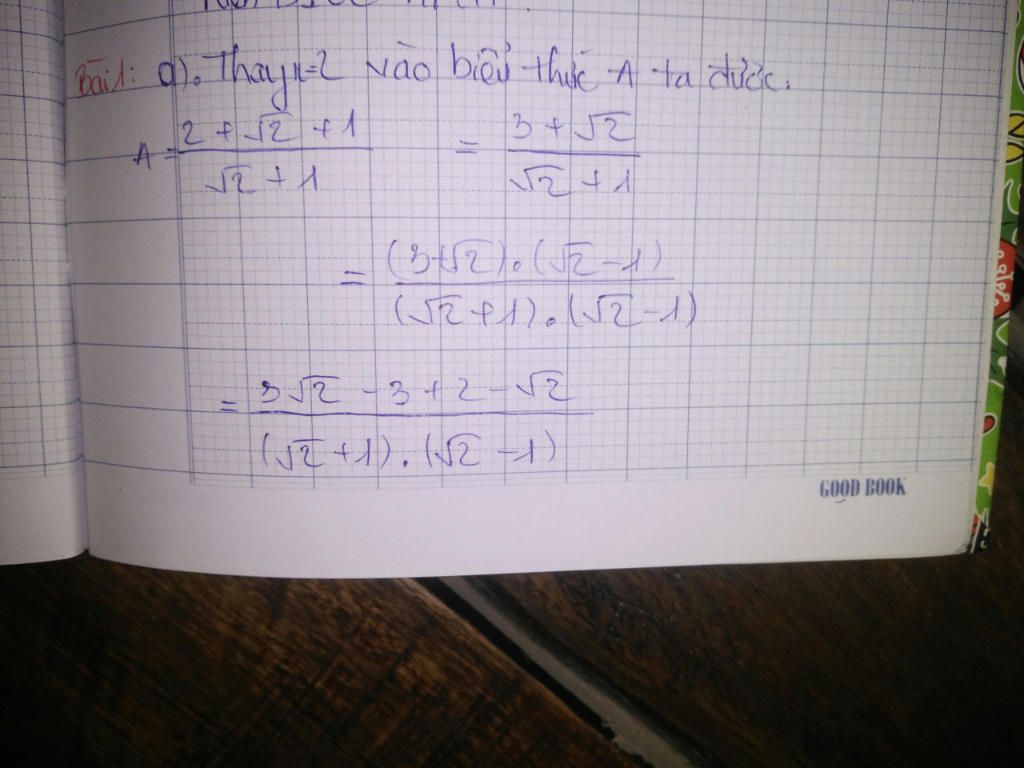 Bài 1: a). Thay x=2 vào biểu thức A ta được:
A = \frac{2 + √2 + 1}{√2 + 1} = \frac{3 + √2}{√2 + 1}
= \frac{(3+√2).(√2-1)}{(√2+1).(√2-1)}
= \frac{3√2 - 3 + 2 - √2}{(√2+1).(√2-1)}
GOOD BOOK